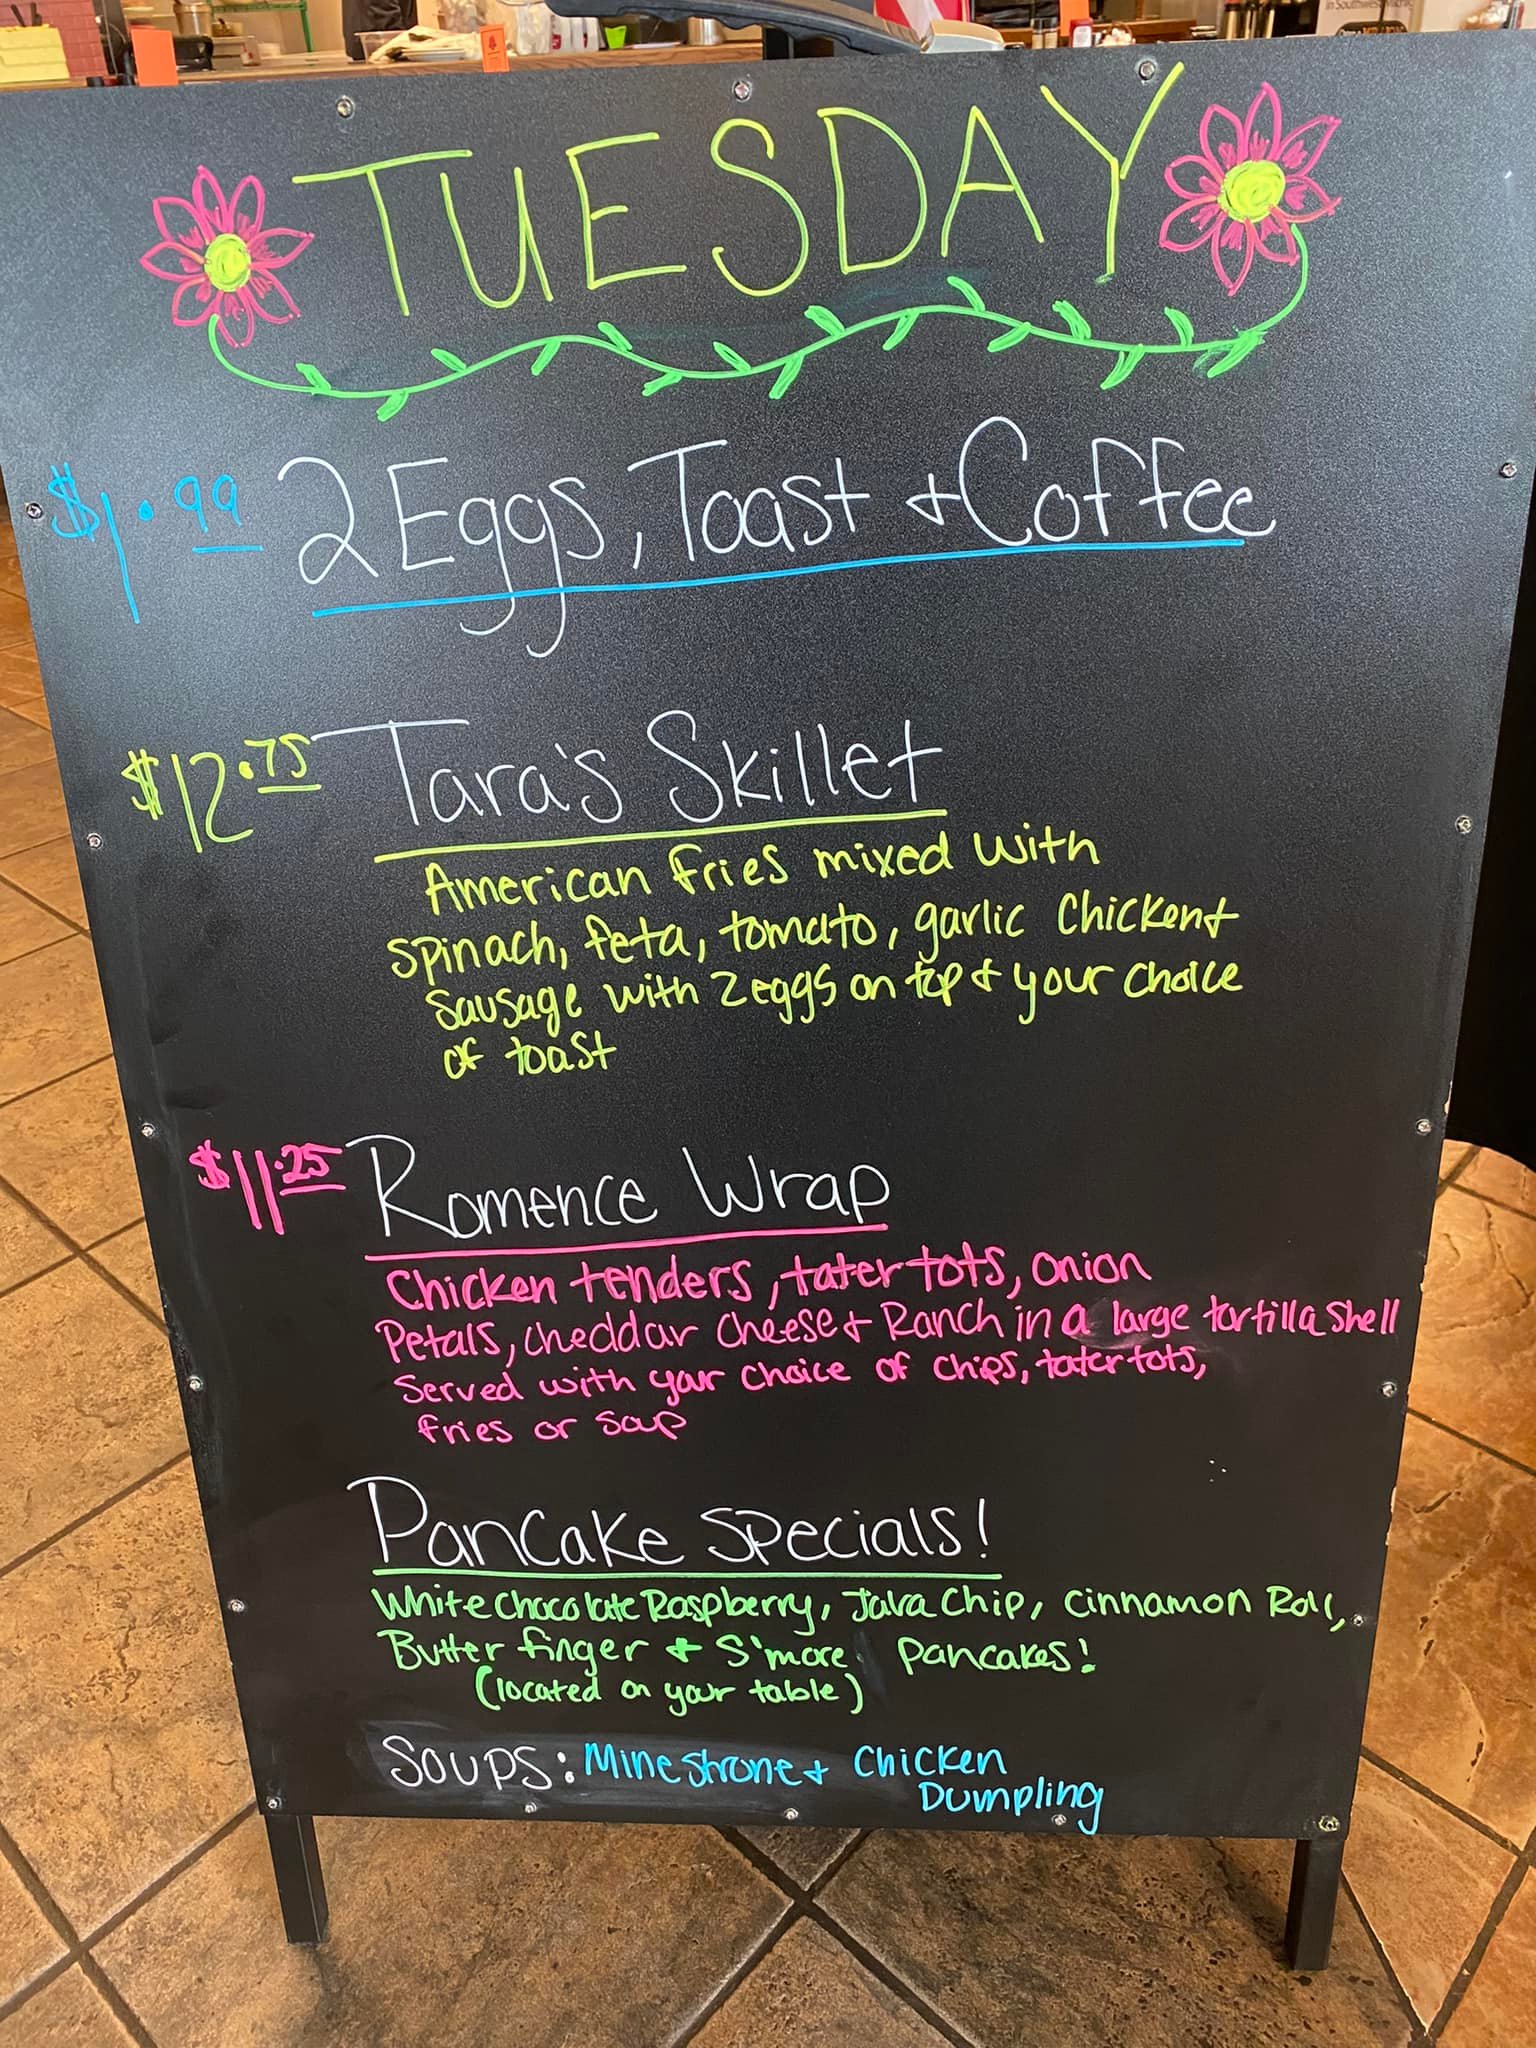 TUESDAY
$1.99 2 Eggs, Toast & Coffee
$12.75 Tara's Skillet
American fries mixed with
spinach, feta, tomato, garlic chicken &
sausage with 2 eggs on top & your choice
of toast
$11.25 Romence Wrap
Chicken tenders, tater tots, onion
Petals, cheddar cheese & Ranch in a large tortilla shell
Served with your choice of chips, tater tots,
fries or soup
Pancake Specials!
White chocolate Raspberry, Java Chip, Cinnamon Roll,
Butter finger & S'more Pancakes!
(located on your table)
Soups: Minestrone & Chicken
Dumpling